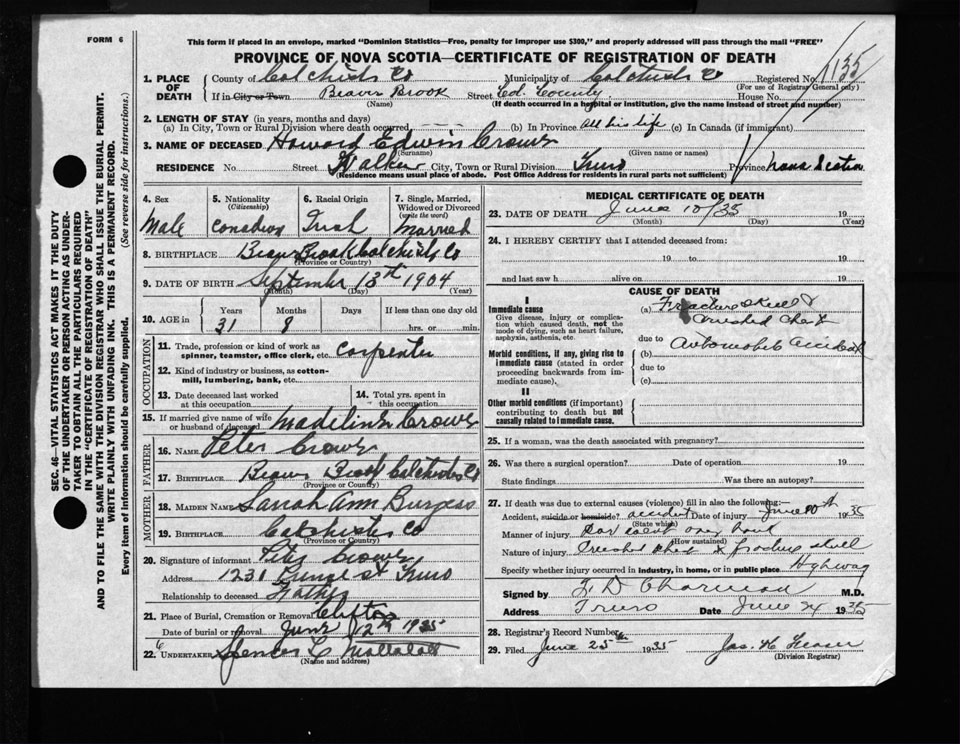 FORM 6
This form if placed in an envelope, marked "Dominion Statistics—Free, penalty for improper use $300," and properly addressed will pass through the mail "FREE"
PROVINCE OF NOVA SCOTIA—CERTIFICATE OF REGISTRATION OF DEATH
SEC. 46—VITAL STATISTICS ACT MAKES IT THE DUTY
OF THE UNDERTAKER OR PERSON ACTING AS UNDER-
TAKER TO OBTAIN ALL THE PARTICULARS REQUIRED
IN THE "CERTIFICATE OF REGISTRATION OF DEATH"
AND TO FILE THE SAME WITH THE DIVISION REGISTRAR WHO SHALL ISSUE THE BURIAL PERMIT.
WRITE PLAINLY WITH UNFADING INK. THIS IS A PERMANENT RECORD.
Every item of information should be carefully supplied. (See reverse side for instructions.)
1. PLACE OF DEATH County of Colchester Co Municipality of Colchester Co Registered No. 1135
(For use of Registrar General only)
If in City or Town Beaver Brook Street Col. County House No.
(Name) (If death occurred in a hospital or institution, give the name instead of street and number)
2. LENGTH OF STAY (in years, months and days)
(a) In City, Town or Rural Division where death occurred (b) In Province All his life (c) In Canada (if immigrant)
3. NAME OF DECEASED Howard Edwin Crowe
(Surname) (Given name or names)
RESIDENCE No Street Walker City, Town or Rural Division Truro Province Nova Scotia
(Residence means usual place of abode. Post Office Address for residents in rural parts not sufficient)
4. Sex Male
5. Nationality (Citizenship) Canadian
6. Racial Origin Irish
7. Single, Married, Widowed or Divorced (write the word) Married
8. BIRTHPLACE Beaver Brook Colchester Co
(Province or Country)
9. DATE OF BIRTH September 13th 1904
(Month) (Day) (Year)
10. AGE in Years 31 Months 8 Days If less than one day old
hrs. or min.
OCCUPATION
11. Trade, profession or kind of work as
spinner, teamster, office clerk, etc. Carpenter
12. Kind of industry or business, as cotton-
mill, lumbering, bank, etc.
13. Date deceased last worked at this occupation
14. Total yrs. spent in this occupation
15. If married give name of wife or husband of deceased Madeline Crowe
FATHER
16. NAME Peter Crowe
17. BIRTHPLACE Beaver Brook Colchester Co
(Province or Country)
MOTHER
18. MAIDEN NAME Sarah Ann Burgess
19. BIRTHPLACE Colchester Co
(Province or Country)
20. Signature of informant Peter Crowe
Address 1231 Prince St Truro
Relationship to deceased Father
21. Place of Burial, Cremation or Removal Clifton
Date of burial or removal June 12th 1935
22. UNDERTAKER Spencer C
(Name and address)
MEDICAL CERTIFICATE OF DEATH
23. DATE OF DEATH June 10/35 19
(Month) (Day) (Year)
24. I HEREBY CERTIFY that I attended deceased from:
19 to 19
and last saw h alive on 19
CAUSE OF DEATH
I
Immediate cause
Give disease, injury or complica-
tion which caused death, not the
mode of dying, such as heart failure,
asphyxia, asthenia, etc.
(a) Fracture Skull &
Crushed Chest
due to
Morbid conditions, if any, giving rise to
immediate cause (stated in order
proceeding backwards from im-
mediate cause).
(b) Automobile accident
due to
(c)
II
Other morbid conditions (if important)
contributing to death but not
causally related to immediate cause.
25. If a woman, was the death associated with pregnancy?
26. Was there a surgical operation? Date of operation 19
State findings Was there an autopsy?
27. If death was due to external causes (violence) fill in also the following:
Accident, suicide or homicide? accident Date of injury June 10th 1935
(State which)
Manner of injury Car went over bank
(How sustained)
Nature of injury Crushed chest & fracture skull
Specify whether injury occurred in industry, in home, or in public place Highway
Signed by F D Charman M.D.
Address Truro Date June 24 1935
28. Registrar's Record Number
29. Filed June 25th 1935 Jas. H
(Division Registrar)